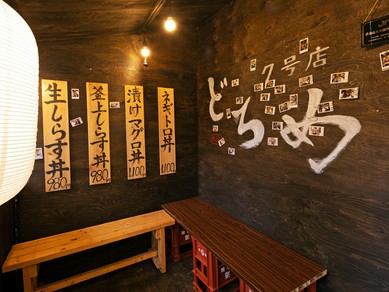 生しらす丼
980円
釜上しらす丼
980円
漬けマグロ丼
1100円
ネギトロ丼
1100円
7号店
どちめ